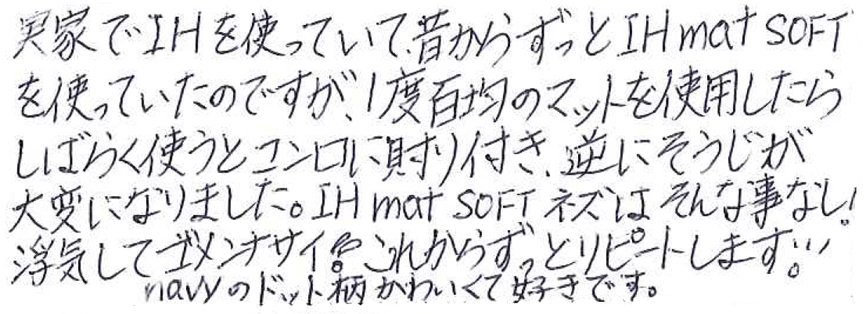 実家でIHを使っていて、昔からずっとIH mat SOFT
を使っていたのですが、1度百均のマットを使用したら
しばらく使うとコンロに財り付き、逆にそうじが
大変になりました。IH mat SOFT ネズはそんな事なし!
浮気してゴメンナサイ。これからずっとリピートします!!
navyのドット柄かわいくて好きです。